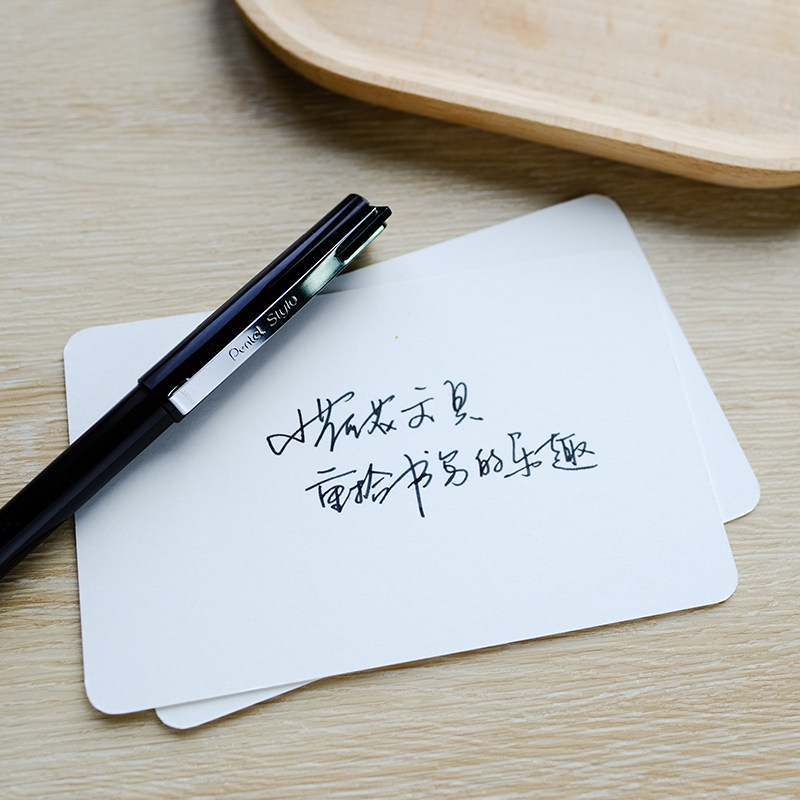 Pentel Stylo
文具
重拾书写的乐趣